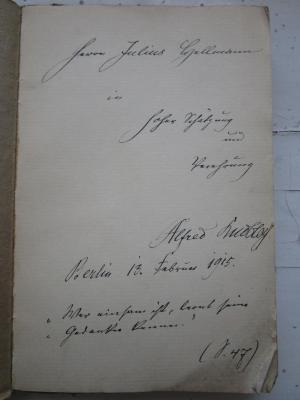 Herrn Julius Hellmann
in
hoher Schätzung
und
Verehrung
Alfred
Berlin 13. Februar 1915.
„Wer einsam ist, lernt seine
„Gedanken kennen.
(S. 47)